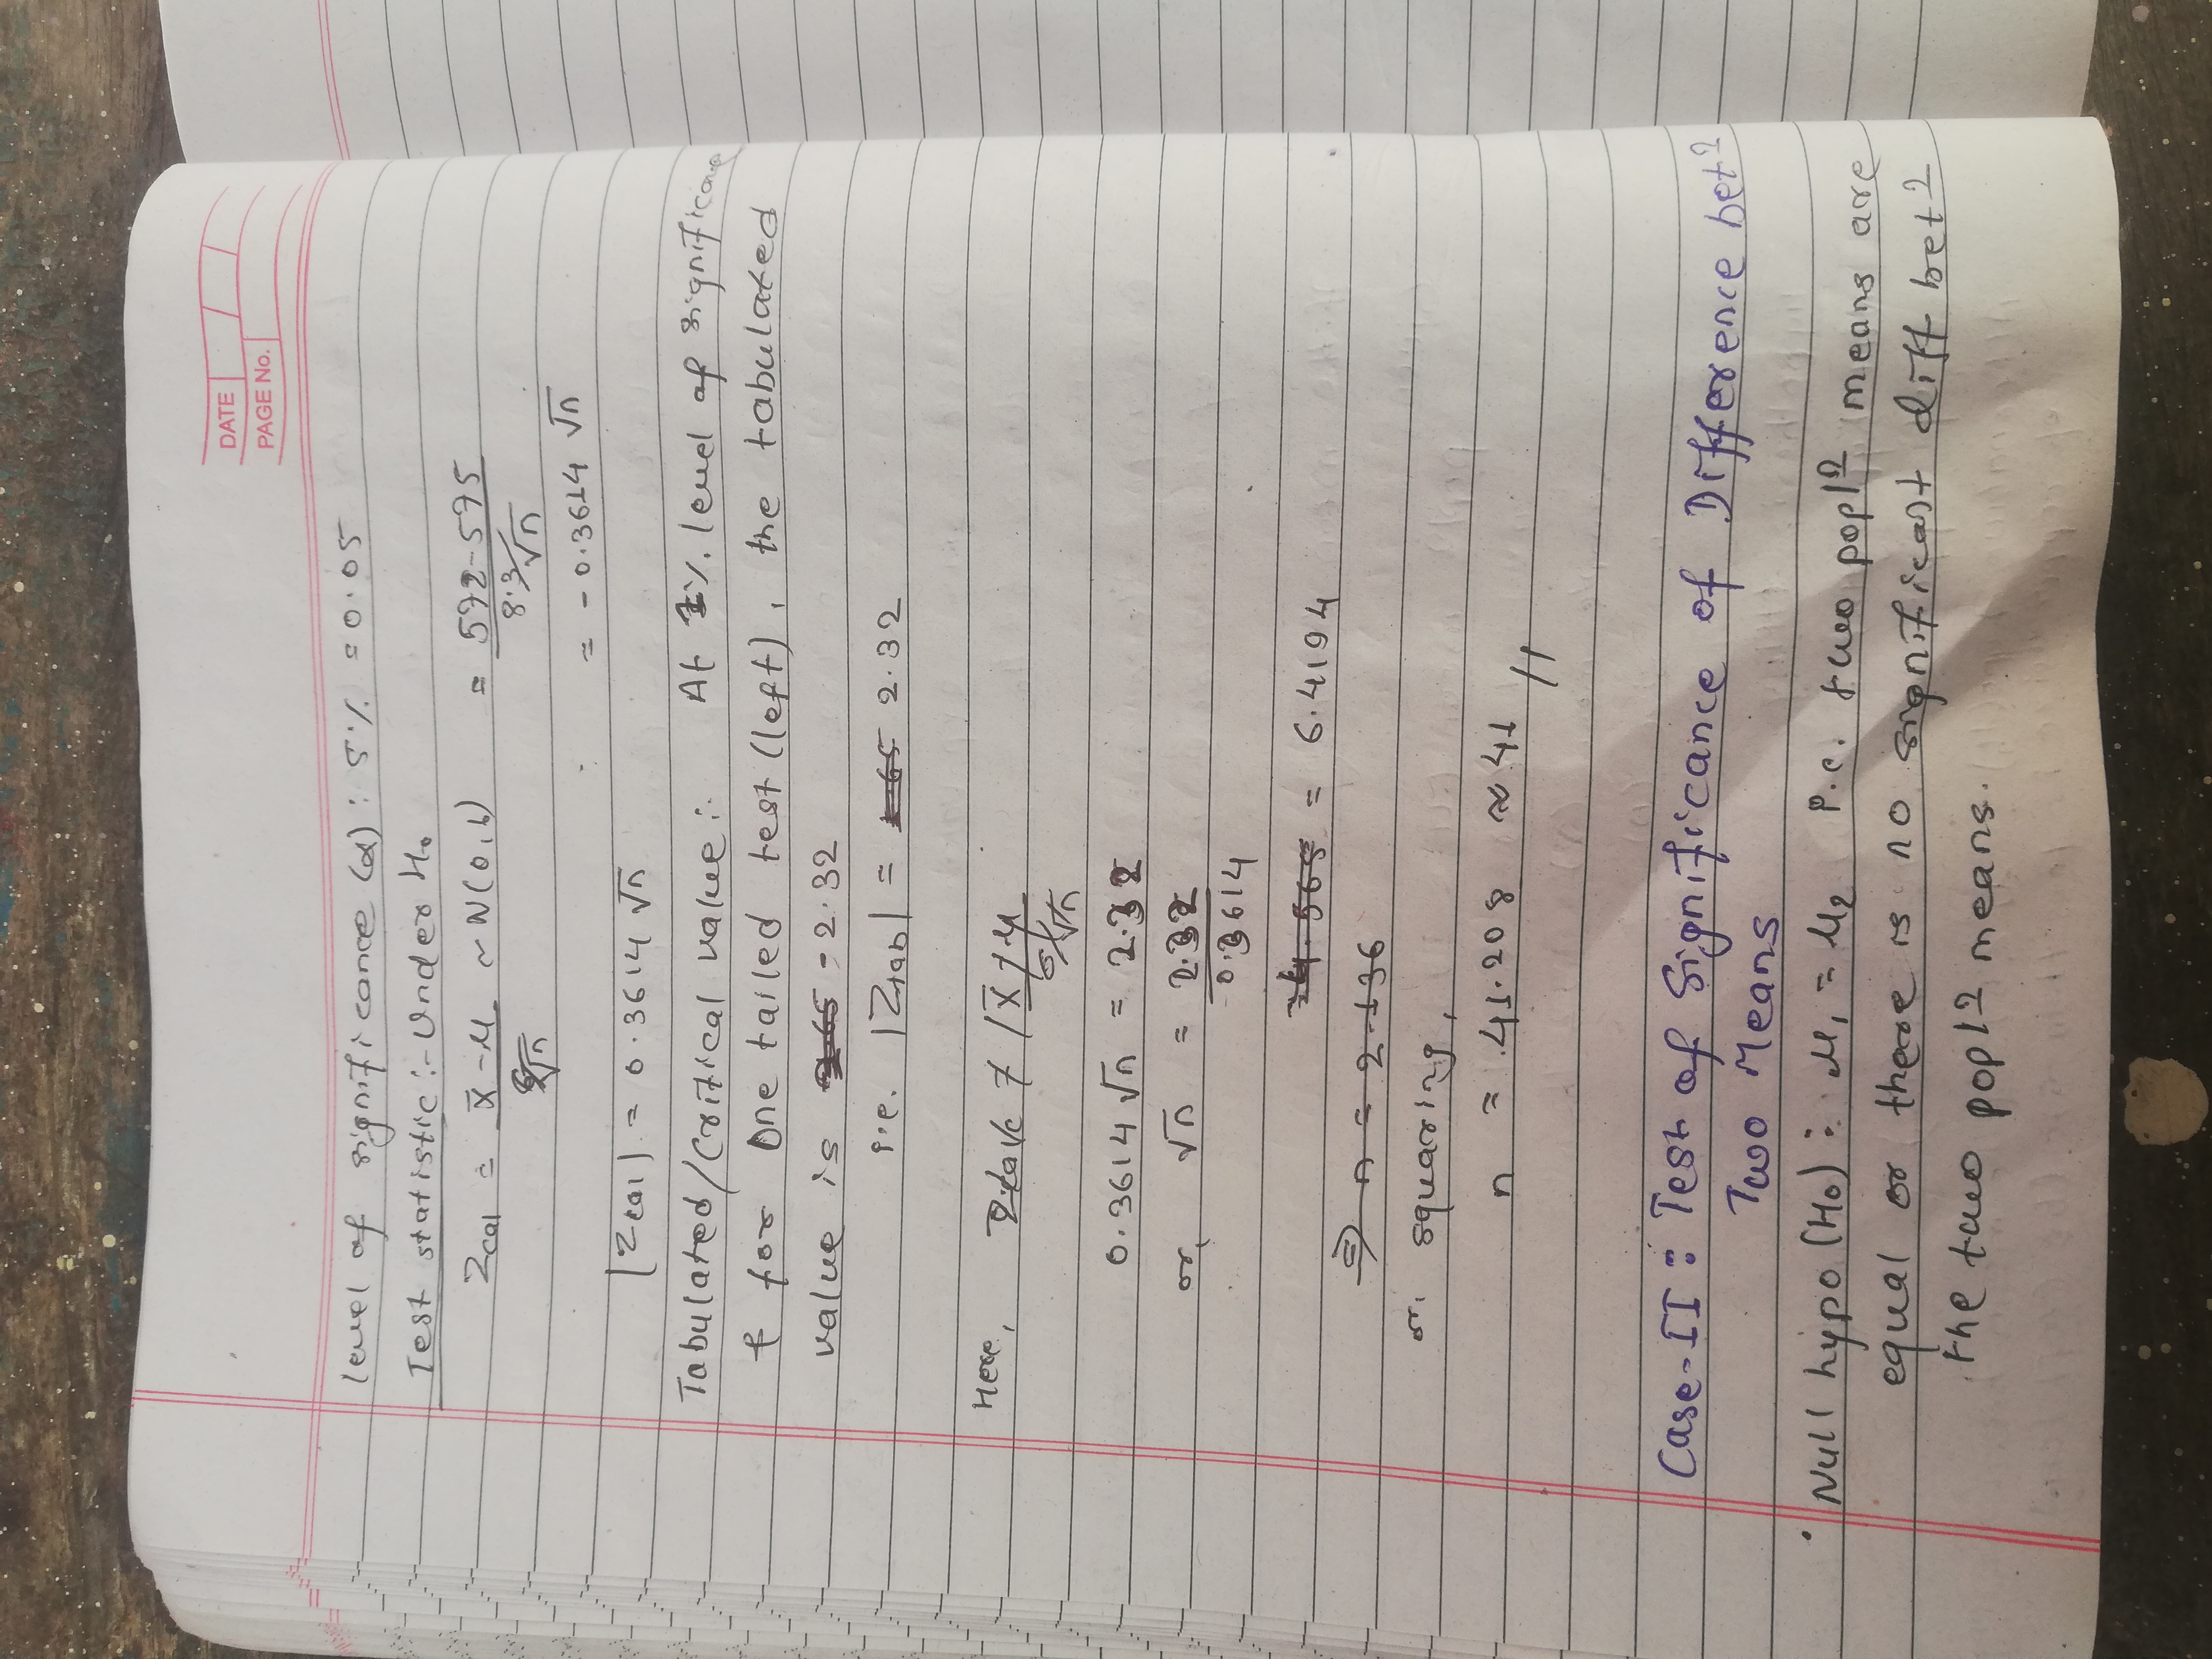 DATE
PAGE No.
level of significance (α) : 5% = 0.05
Test statistic :- Under H₀
Zcal = x̄ - μ / σ/√n ~ N(0,1) = 572-575 / 8.3/√n
= - 0.3614 √n
|Zcal| = 0.3614 √n
Tabulated/Critical value :- At 1% level of significance
& for One tailed test (left), the tabulated
value is -2.32
i.e. |Ztab| = 1.65 2.32
Here,
x̄ - μ / σ/√n
0.3614 √n = 2.32
or, √n = 2.32 / 0.3614
= 4.565 = 6.4194
⇒ n = 2.136
or, squaring,
n = 41.208 ≈ 41 //
Case-II : Test of Significance of Difference betⁿ
Two Means
• Null hypo (H₀) : μ₁ = μ₂ i.e. two poplⁿ means are
equal or there is no significant diff betⁿ
the two poplⁿ means.